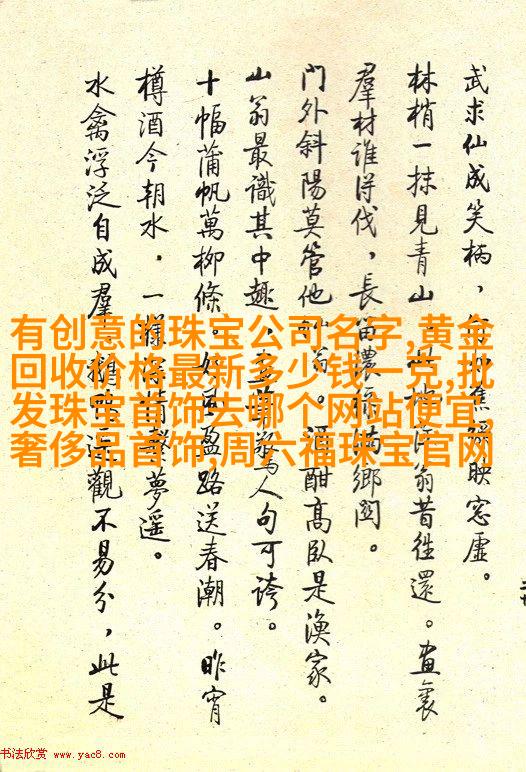 有创意的珠宝公司名字,黄金
回收价格最新多少钱一克,批
发珠宝首饰去哪个网站便宜,
奢侈品首饰,周六福珠宝官网
武求仙成笑柄，焦映窓虛。
林梢一抹見青山，翁昔往還。畫裏
羣材誰得伐，長笛滿鄉関。
門外斜陽莫管他翁。酒酣高臥是漁家。
山翁最識其中趣，驚人句可誇。
十幅蒲帆萬柳條。盈路送春潮。昨宵
樽酒今朝水，一樣夢遥。
水禽浮泛自成羣，觀不易分，此是
书法欣赏 www.yac8.com